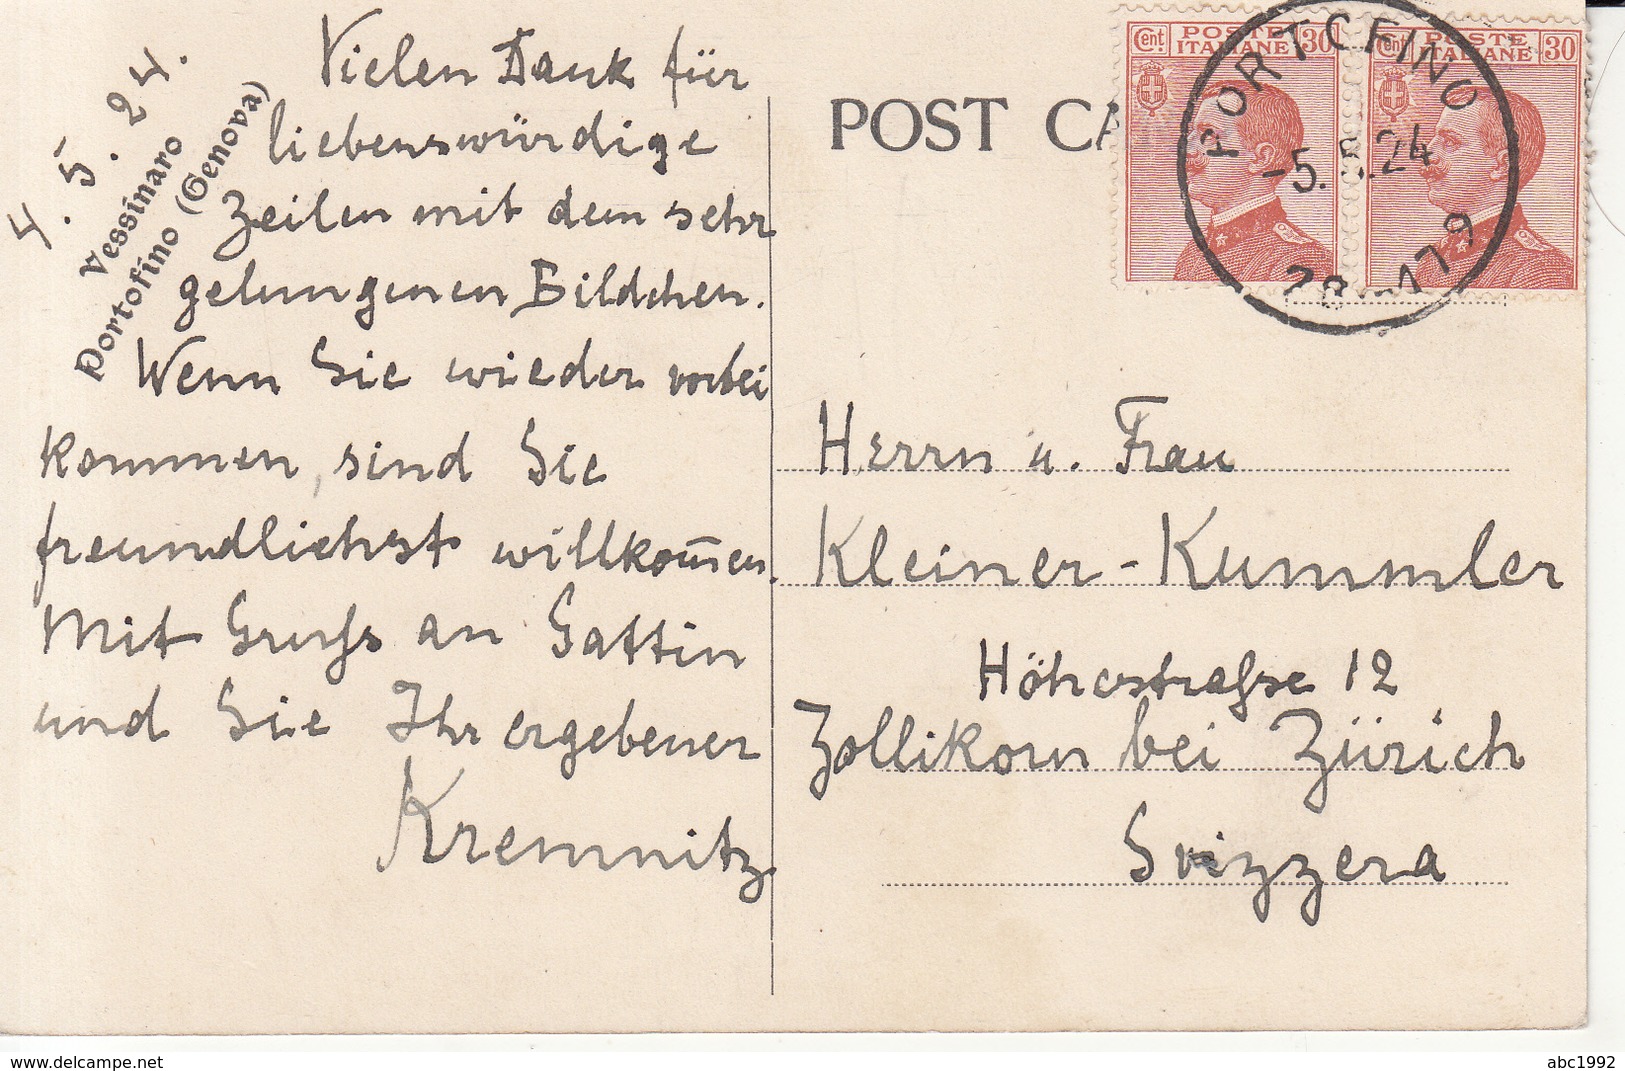 4.5.24.
Vessinaro
Portofino (Genova)
Vielen Dank für
liebenswürdige
Zeilen mit dem sehr
gelungenen Bildchen.
Wenn Sie wieder vorbei
kommen, sind Sie
freundlichst willkom̅en.
Mit Gruss an Gattin
und Sie Ihr ergebener
Kremnitz
POST CA
Cent. POSTE ITALIANE 30
Cent. POSTE ITALIANE 30
PORTOFINO
-5.5.24
Herrn u. Frau
Kleiner-Kummler
Höhestrasse 12
Zollikon bei Zürich
Svizzera
www.delcampe.net
abc1992